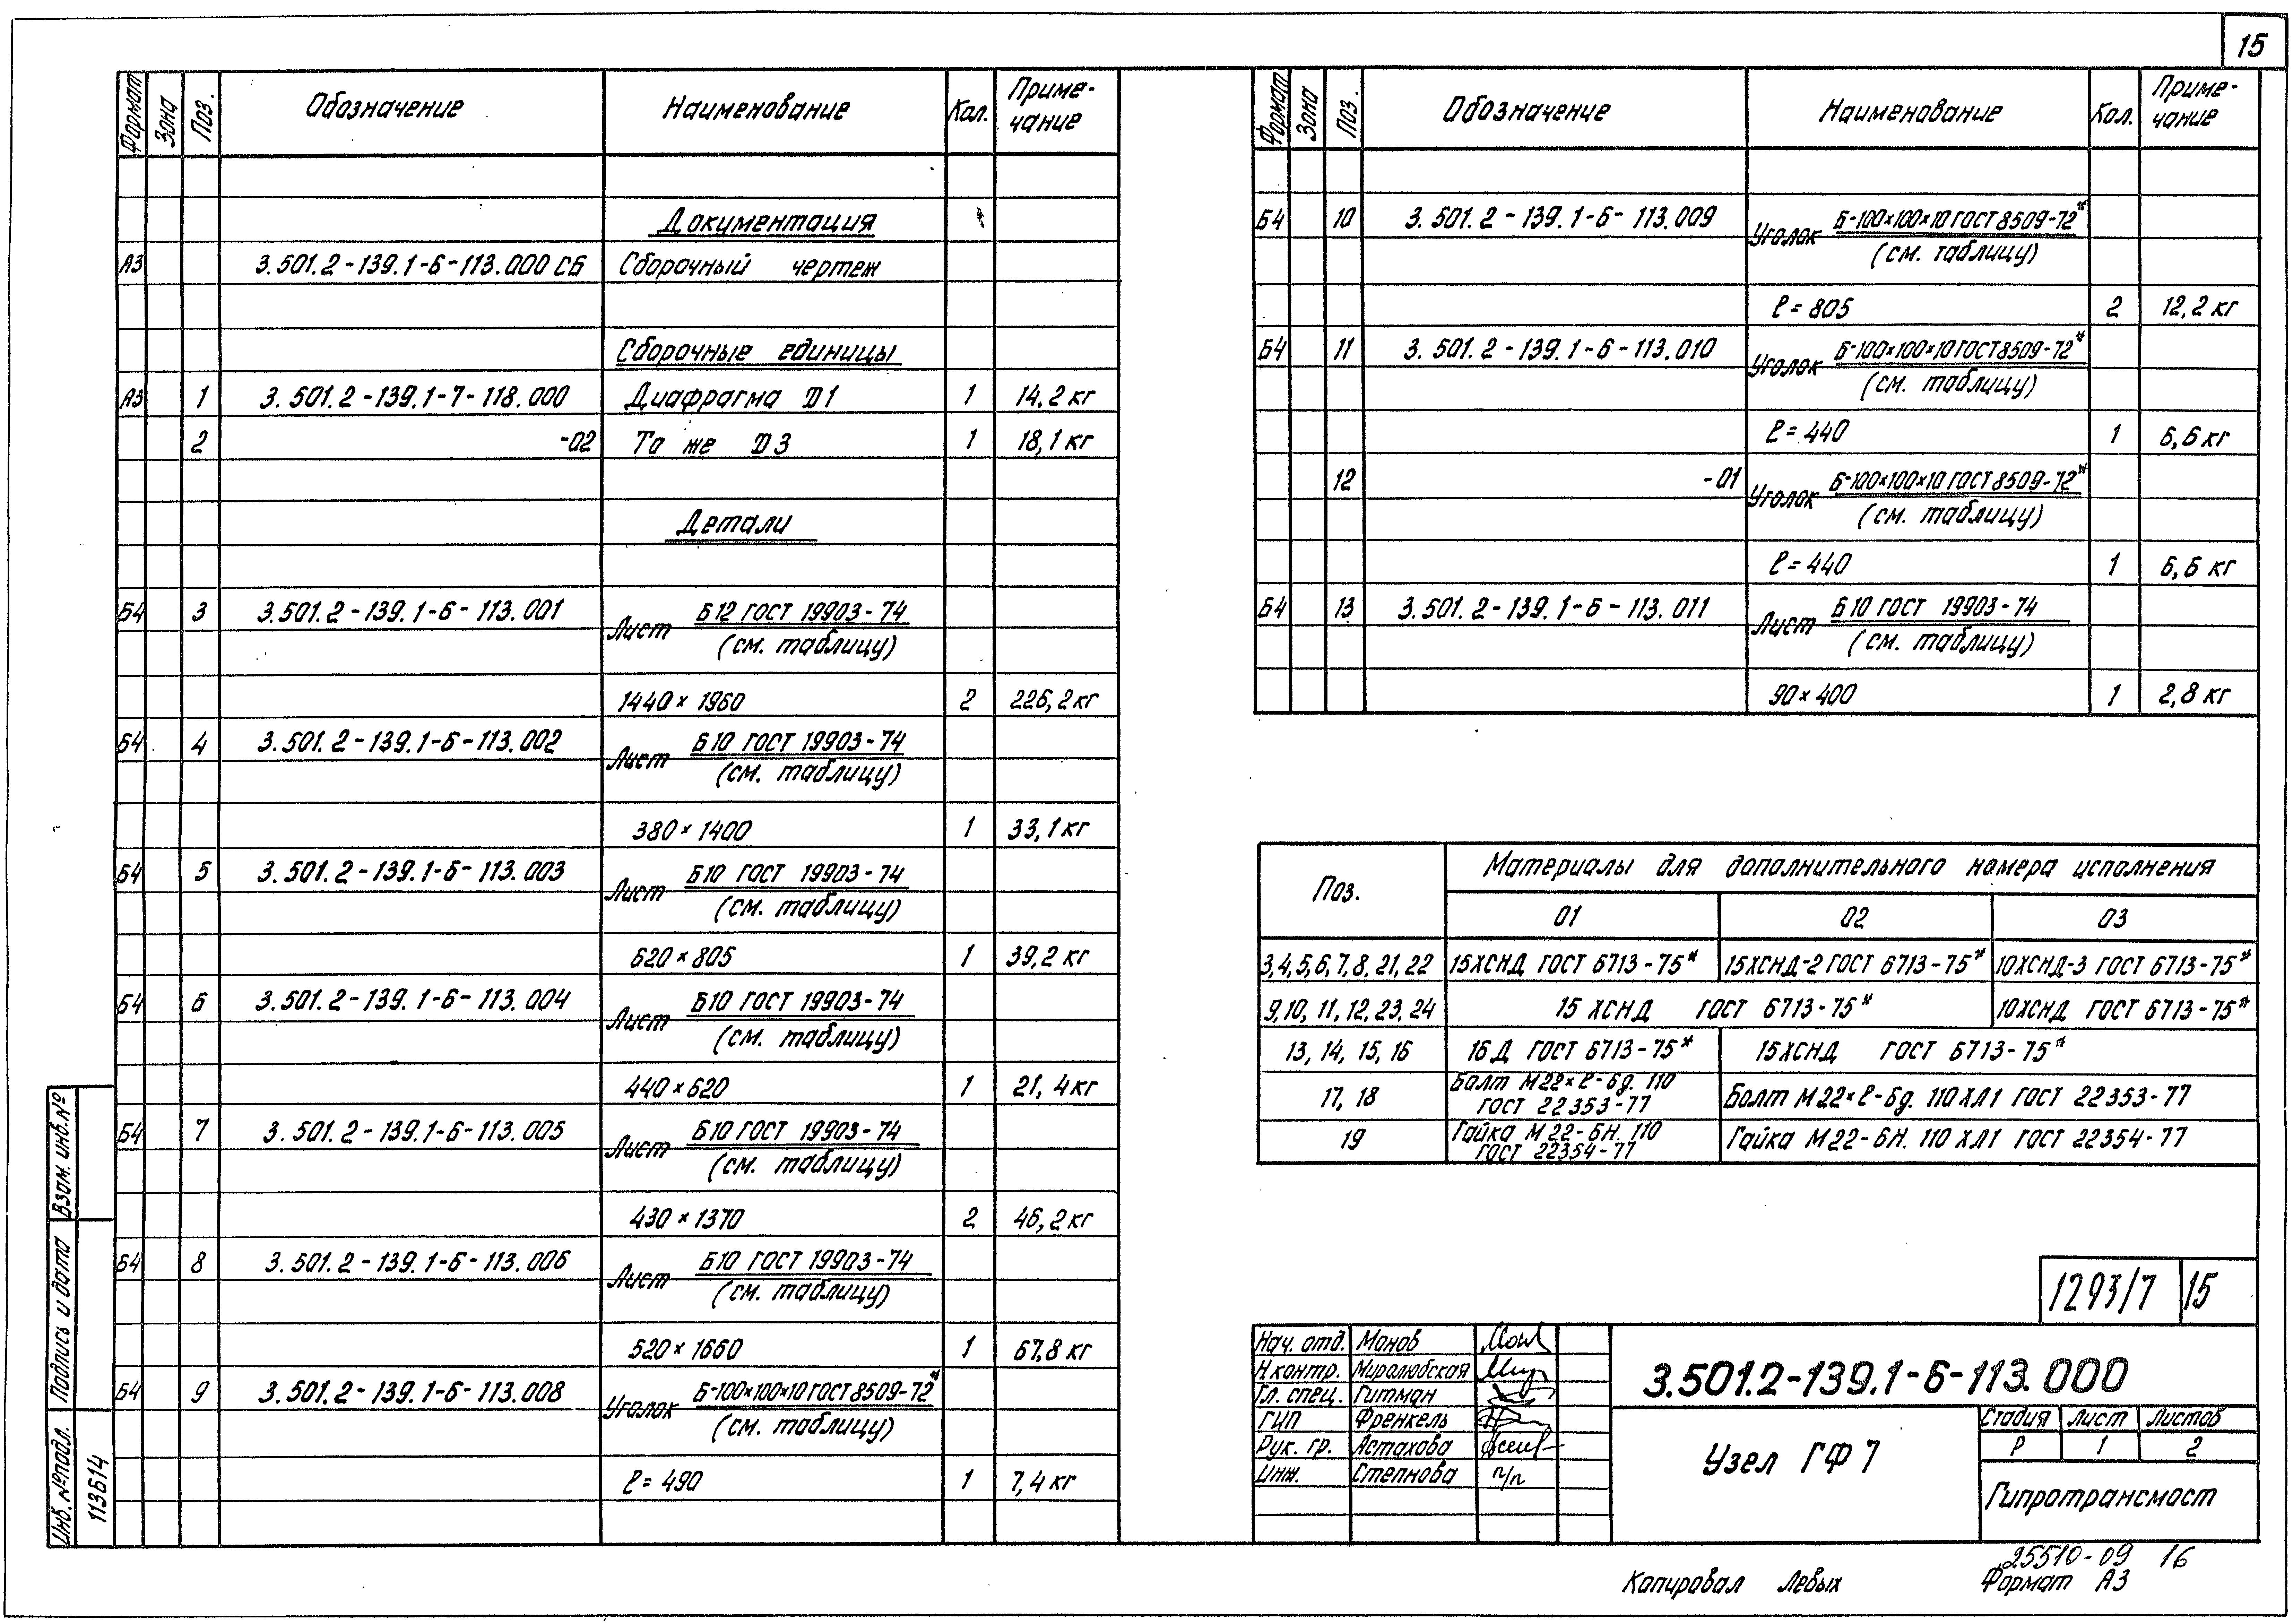 15
Формат Зона Поз. Обозначение Наименование Кол. Приме-
чание
Документация
А3 3.501.2-139.1-6-113.000 СБ Сборочный чертеж
Сборочные единицы
А3 1 3.501.2-139.1-7-118.000 Диафрагма D1 1 14,2 кг
2 -02 То же D3 1 18,1 кг
Детали
Б4 3 3.501.2-139.1-6-113.001 Лист Б12 ГОСТ 19903-74
(см. таблицу)
1440×1960 2 226,2 кг
Б4 4 3.501.2-139.1-6-113.002 Лист Б10 ГОСТ 19903-74
(см. таблицу)
380×1400 1 33,1 кг
Б4 5 3.501.2-139.1-6-113.003 Лист Б10 ГОСТ 19903-74
(см. таблицу)
620×805 1 39,2 кг
Б4 6 3.501.2-139.1-6-113.004 Лист Б10 ГОСТ 19903-74
(см. таблицу)
440×620 1 21,4 кг
Б4 7 3.501.2-139.1-6-113.005 Лист Б10 ГОСТ 19903-74
(см. таблицу)
430×1370 2 46,2 кг
Б4 8 3.501.2-139.1-6-113.006 Лист Б10 ГОСТ 19903-74
(см. таблицу)
520×1660 1 67,8 кг
Б4 9 3.501.2-139.1-6-113.008 Уголок Б-100×100×10 ГОСТ 8509-72*
(см. таблицу)
ℓ=490 1 7,4 кг
Формат Зона Поз. Обозначение Наименование Кол. Приме-
чание
Б4 10 3.501.2-139.1-6-113.009 Уголок Б-100×100×10 ГОСТ 8509-72*
(см. таблицу)
ℓ=805 2 12,2 кг
Б4 11 3.501.2-139.1-6-113.010 Уголок Б-100×100×10 ГОСТ 8509-72*
(см. таблицу)
ℓ=440 1 6,6 кг
12 -01 Уголок Б-100×100×10 ГОСТ 8509-72*
(см. таблицу)
ℓ=440 1 6,6 кг
Б4 13 3.501.2-139.1-6-113.011 Лист Б10 ГОСТ 19903-74
(см. таблицу)
90×400 1 2,8 кг
Поз. Материалы для дополнительного номера исполнения
01 02 03
3,4,5,6,7,8,21,22 15ХСНД ГОСТ 6713-75* 15ХСНД-2 ГОСТ 6713-75* 10ХСНД-3 ГОСТ 6713-75*
9,10,11,12,23,24 15 ХСНД ГОСТ 6713-75* 10ХСНД ГОСТ 6713-75*
13, 14, 15, 16 16Д ГОСТ 6713-75* 15ХСНД ГОСТ 6713-75*
17, 18 Болт М22×ℓ-6g. 110
ГОСТ 22353-77 Болт М22×ℓ-6g. 110ХЛ1 ГОСТ 22353-77
19 Гайка М22-6Н. 110
ГОСТ 22354-77 Гайка М22-6Н. 110 ХЛ1 ГОСТ 22354-77
1293/7 15
Нач. отд. Монов
Н.контр. Миролюбская
Гл. спец. Гитман
ГИП Френкель
Рук. гр. Астахова
Инж. Степнова п/п
3.501.2-139.1-6-113.000
Узел ГФ7
Стадия Лист Листов
Р 1 2
Гипротрансмост
Взам. инв.№
Подпись и дата
Инв.№подл.
113614
25510-09 16
Копировал Левых Формат А3